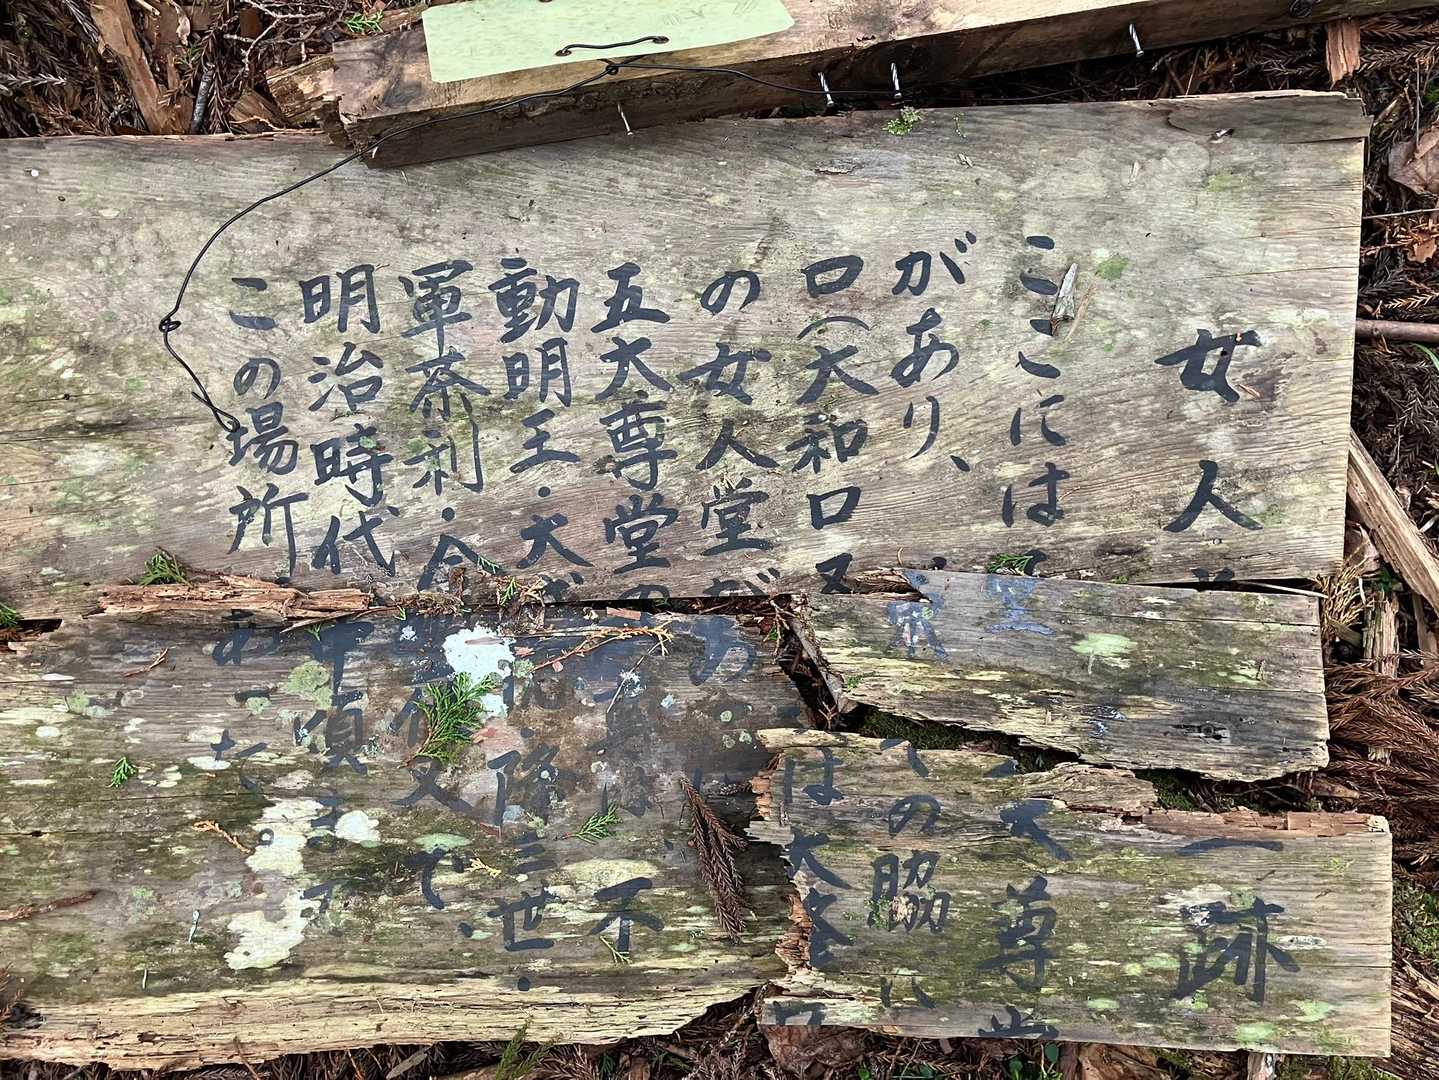 女人 跡
ここには 大尊堂
があり、 その脇に
口(大和口又は大峯口
の女人堂があ
五大尊堂の本尊は、不
動明王・大 ・降三世・
軍荼利・ 夜叉で、
明治時代中頃まで
この場所